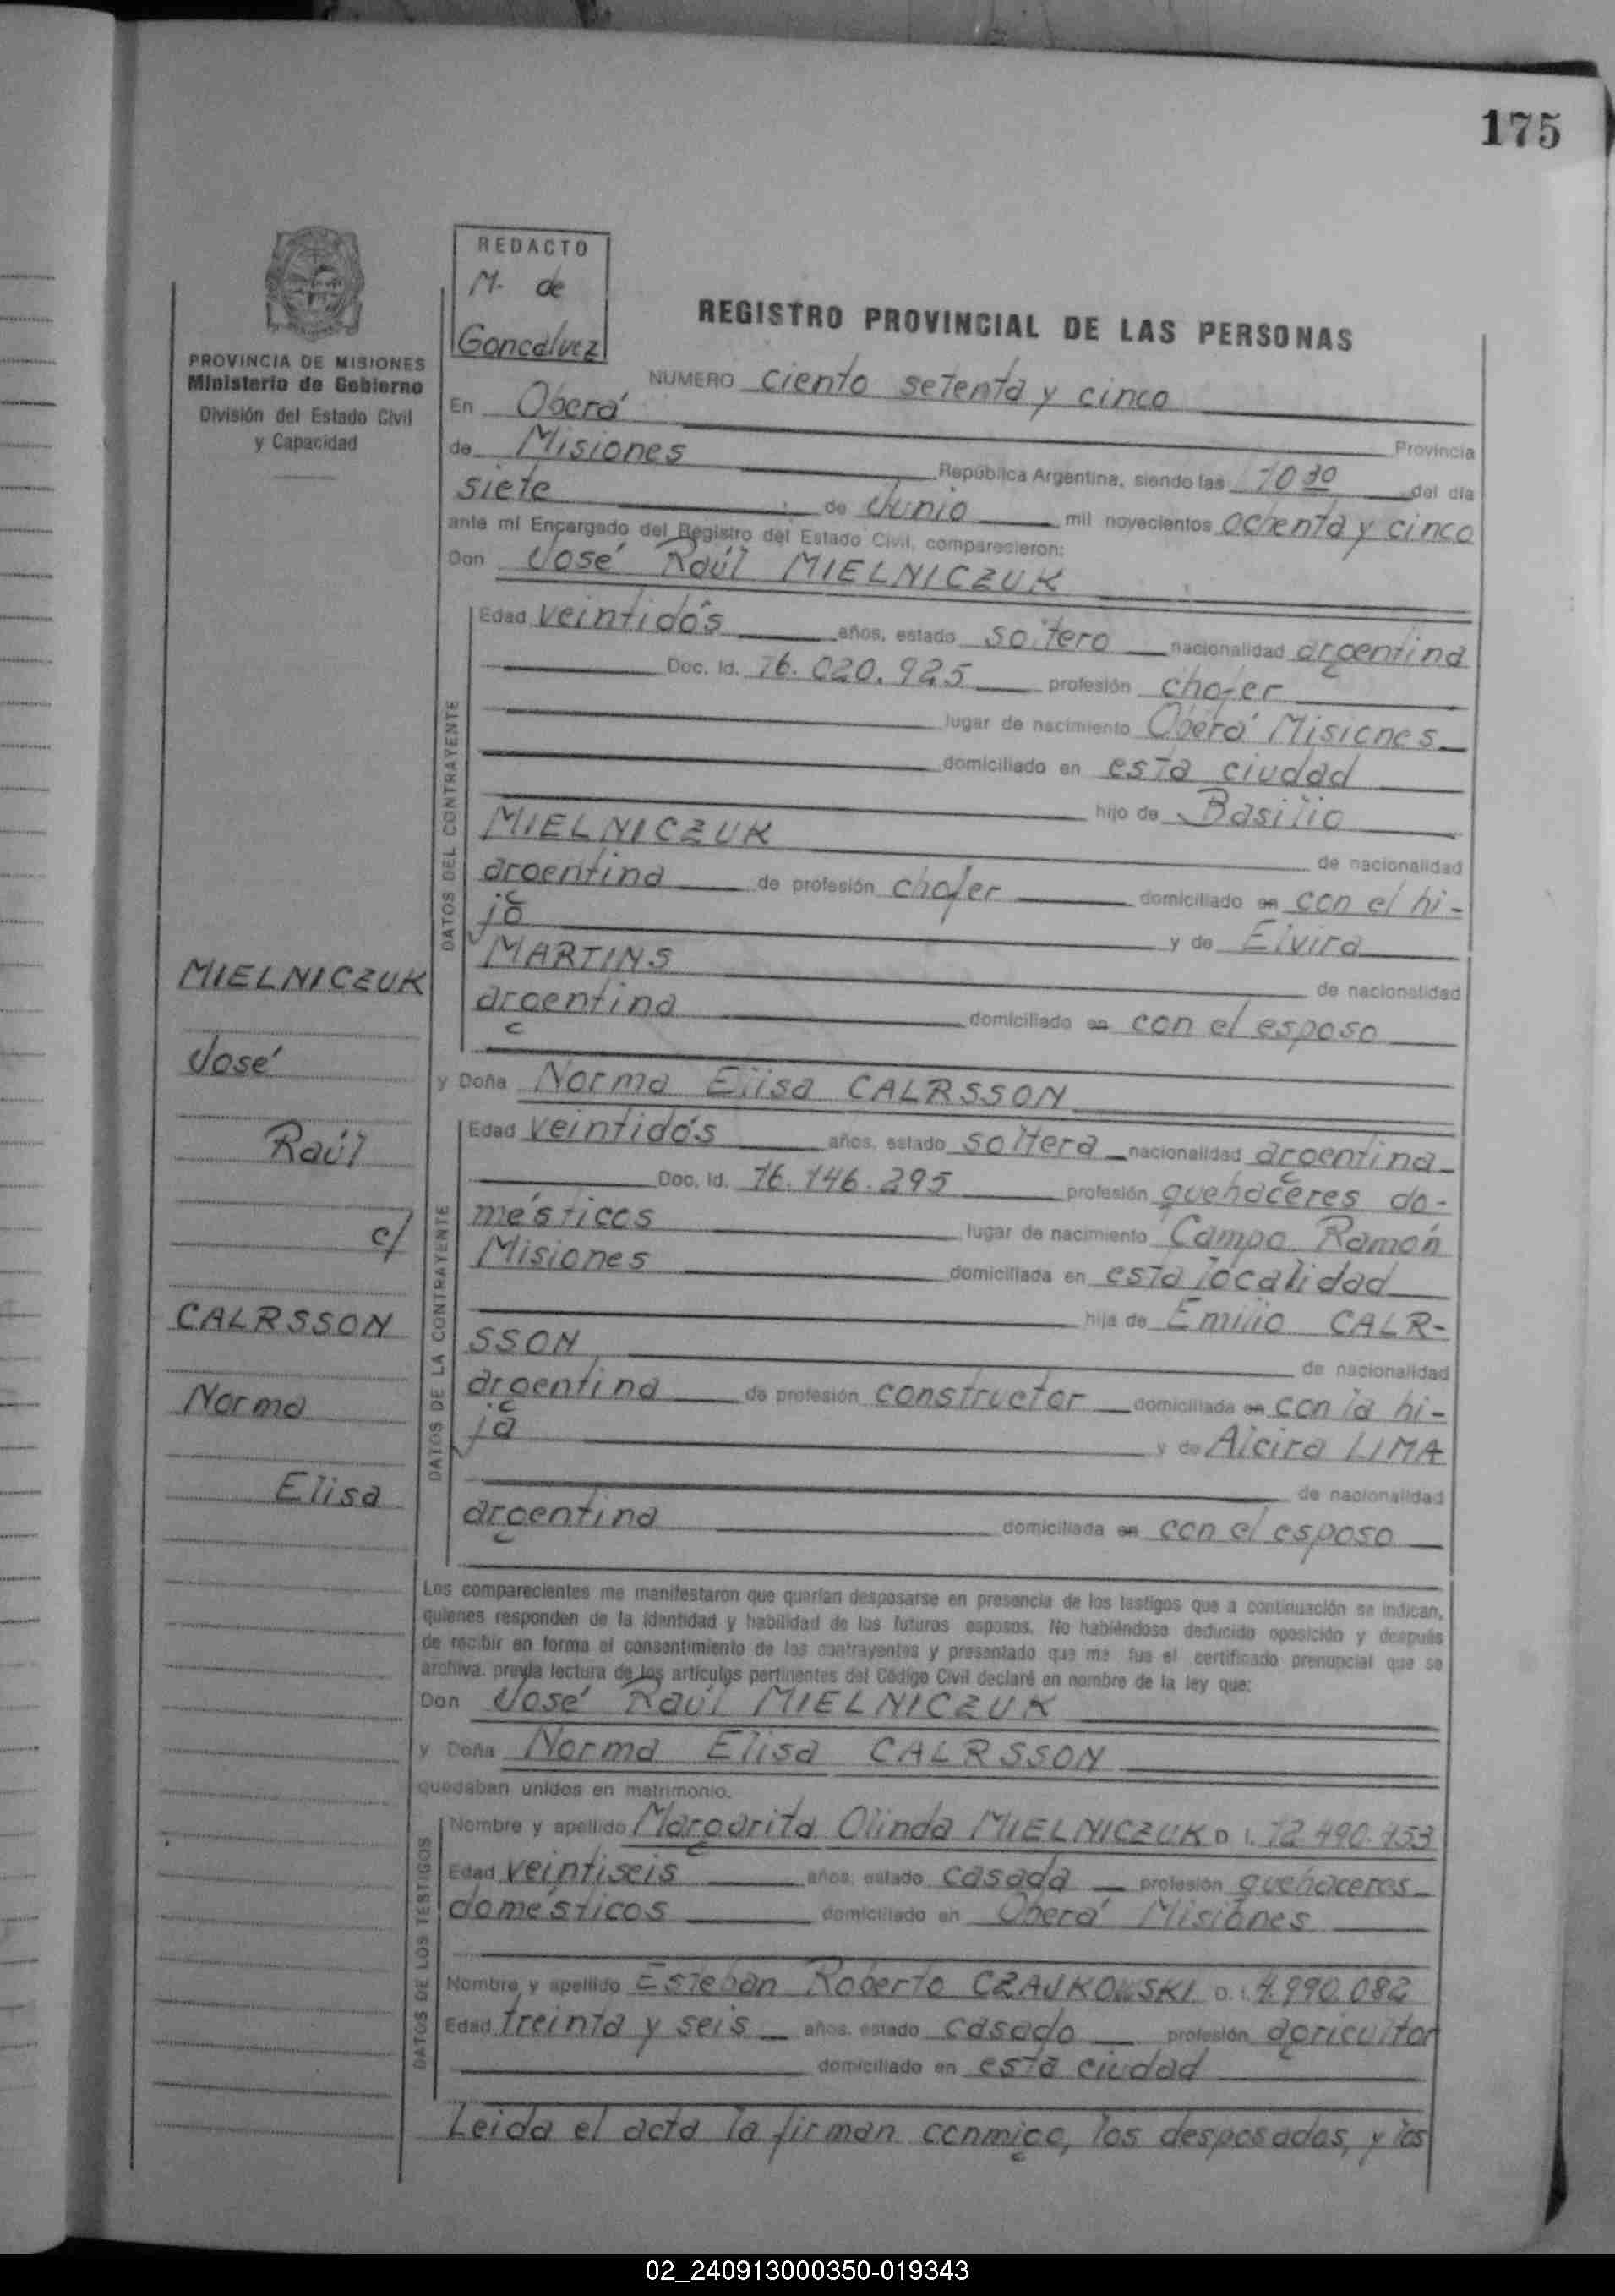 175
REDACTO
M. de
Goncalvez
PROVINCIA DE MISIONES
Ministerio de Gobierno
División del Estado Civil
y Capacidad
REGISTRO PROVINCIAL DE LAS PERSONAS
NUMERO ciento setenta y cinco
En Oberá Provincia
de Misiones República Argentina, siendo las 10 30 del día
siete de Junio mil novecientos ochenta y cinco
ante mí Encargado del Registro del Estado Civil, comparecieron:
Don José Raúl MIELNICZUK
DATOS DEL CONTRAYENTE
Edad veintidós años, estado soltero nacionalidad argentina
Doc. Id. 16.020.925 profesión chofer
lugar de nacimiento Oberá Misiones
domiciliado en esta ciudad
hijo de Basilio
MIELNICZUK de nacionalidad
argentina de profesión chofer domiciliado en con el hi-
jo y de Elvira
MARTINS de nacionalidad
argentina domiciliado en con el esposo
y Doña Norma Elisa CALRSSON
DATOS DE LA CONTRAYENTE
Edad veintidós años, estado soltera nacionalidad argentina
Doc. Id. 16.146.295 profesión quehaceres do-
mésticos lugar de nacimiento Campo Ramón
Misiones domiciliada en esta localidad
hija de Emilio CALR-
SSON de nacionalidad
argentina de profesión constructor domiciliada en con la hi-
ja y de Alcira LIMA
de nacionalidad
argentina domiciliada en con el esposo
MIELNICZUK
José
Raúl
c/
CALRSSON
Norma
Elisa
Los comparecientes me manifestaron que querían desposarse en presencia de los testigos que a continuación se indican,
quienes responden de la identidad y habilidad de los futuros esposos. No habiéndose deducido oposición y después
de recibir en forma el consentimiento de los contrayentes y presentado que me fue el certificado prenupcial que se
archiva. previa lectura de los artículos pertinentes del Código Civil declaré en nombre de la ley que:
Don José Raúl MIELNICZUK
y Doña Norma Elisa CALRSSON
quedaban unidos en matrimonio.
DATOS DE LOS TESTIGOS
Nombre y apellido Margarita Olinda MIELNICZUK D. I. 12.490.153
Edad veintiseis años, estado casada profesión quehaceres
domésticos domiciliado en Oberá Misiones
Nombre y apellido Esteban Roberto CZAJKOWSKI D. I. 4.990.082
Edad treinta y seis años, estado casado profesión agricultor
domiciliado en esta ciudad
Leida el acta la firman conmigo, los desposados, y los
02_240913000350-019343